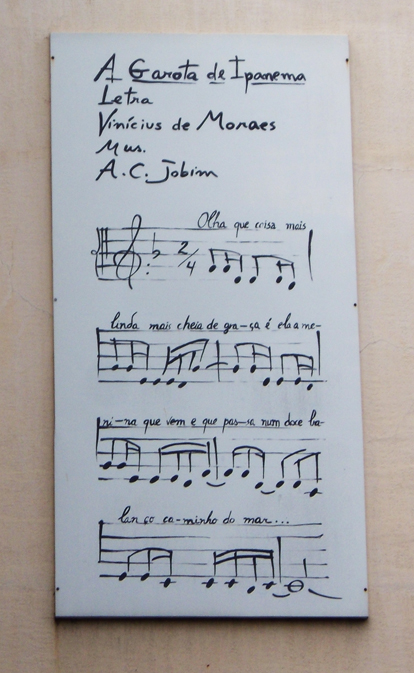 A Garota de Ipanema
Letra
Vinícius de Moraes
Mus.
A.C. Jobim
Olha que coisa mais
2/4
linda mais cheia de gra-ça é ela a me-
ni-na que vem e que pas-sa num doce ba-
lan ço ca-minho do mar...